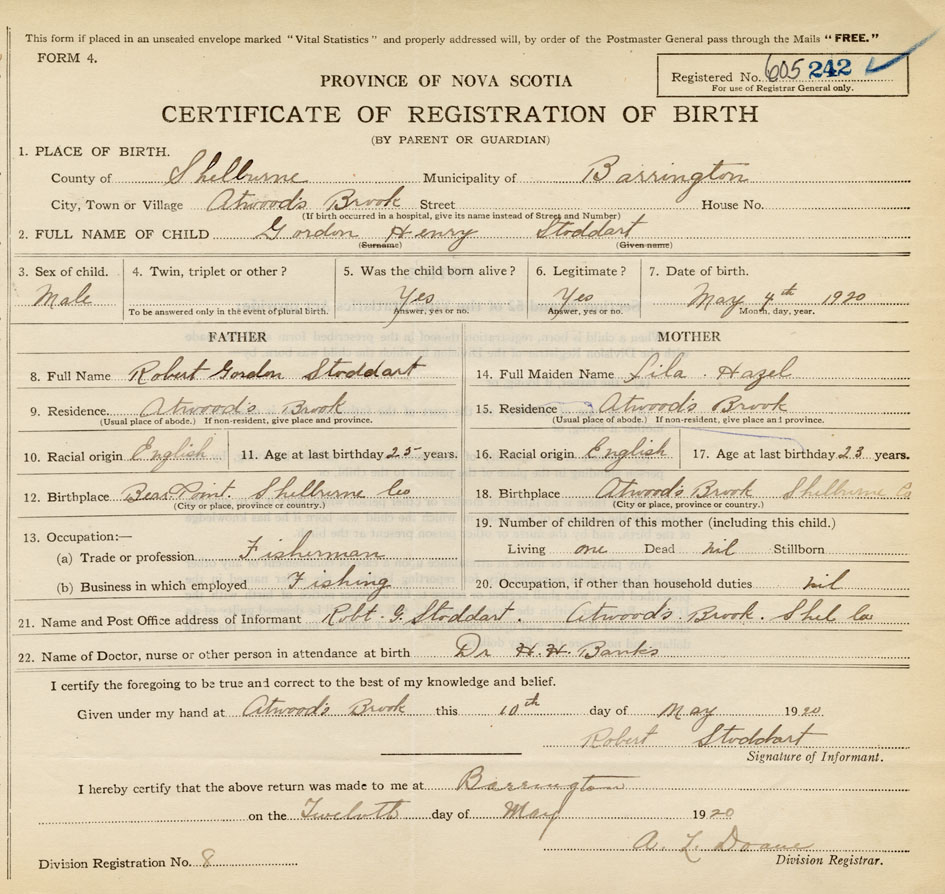 This form if placed in an unsealed envelope marked "Vital Statistics" and properly addressed will, by order of the Postmaster General pass through the Mails "FREE."
FORM 4.
Registered No. 605 242
For use of Registrar General only.
PROVINCE OF NOVA SCOTIA
CERTIFICATE OF REGISTRATION OF BIRTH
(BY PARENT OR GUARDIAN)
1. PLACE OF BIRTH.
County of Shelburne Municipality of Barrington
City, Town or Village Atwood's Brook Street House No.
(If birth occurred in a hospital, give its name instead of Street and Number)
2. FULL NAME OF CHILD Gordon Henry Stoddart
(Surname) (Given name)
3. Sex of child. 4. Twin, triplet or other? 5. Was the child born alive? 6. Legitimate? 7. Date of birth.
Male Yes Yes May 4th 1920
To be answered only in the event of plural birth. Answer, yes or no. Answer, yes or no. Month, day, year.
FATHER
8. Full Name Robert Gordon Stoddart
9. Residence. Atwood's Brook
(Usual place of abode.) If non-resident, give place and province.
10. Racial origin English 11. Age at last birthday 25 years.
12. Birthplace Bear Point. Shelburne Co
(City or place, province or country.)
13. Occupation:—
(a) Trade or profession Fisherman
(b) Business in which employed Fishing
MOTHER
14. Full Maiden Name Lila Hazel
15. Residence Atwood's Brook
(Usual place of abode.) If non-resident, give place and province.
16. Racial origin English 17. Age at last birthday 23 years.
18. Birthplace Atwood's Brook Shelburne Co
(City or place, province or country.)
19. Number of children of this mother (including this child.)
Living one Dead nil Stillborn
20. Occupation, if other than household duties nil
21. Name and Post Office address of Informant Robt. G. Stoddart. Atwood's Brook. Shel Co
22. Name of Doctor, nurse or other person in attendance at birth Dr H. H. Banks
I certify the foregoing to be true and correct to the best of my knowledge and belief.
Given under my hand at Atwood's Brook this 10th day of May 1920
Robert Stoddart
Signature of Informant.
I hereby certify that the above return was made to me at Barrington
on the Twelvth day of May 1920
A. L. Doane
Division Registration No. 8 Division Registrar.